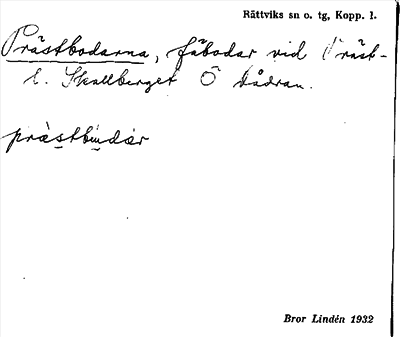 Rättviks sn o. tg, Kopp. l.
Prästbodarna, fäbodar vid Präst-
l. Skallberget Ö Dådran.
prästbudar
Bror Lindén 1932